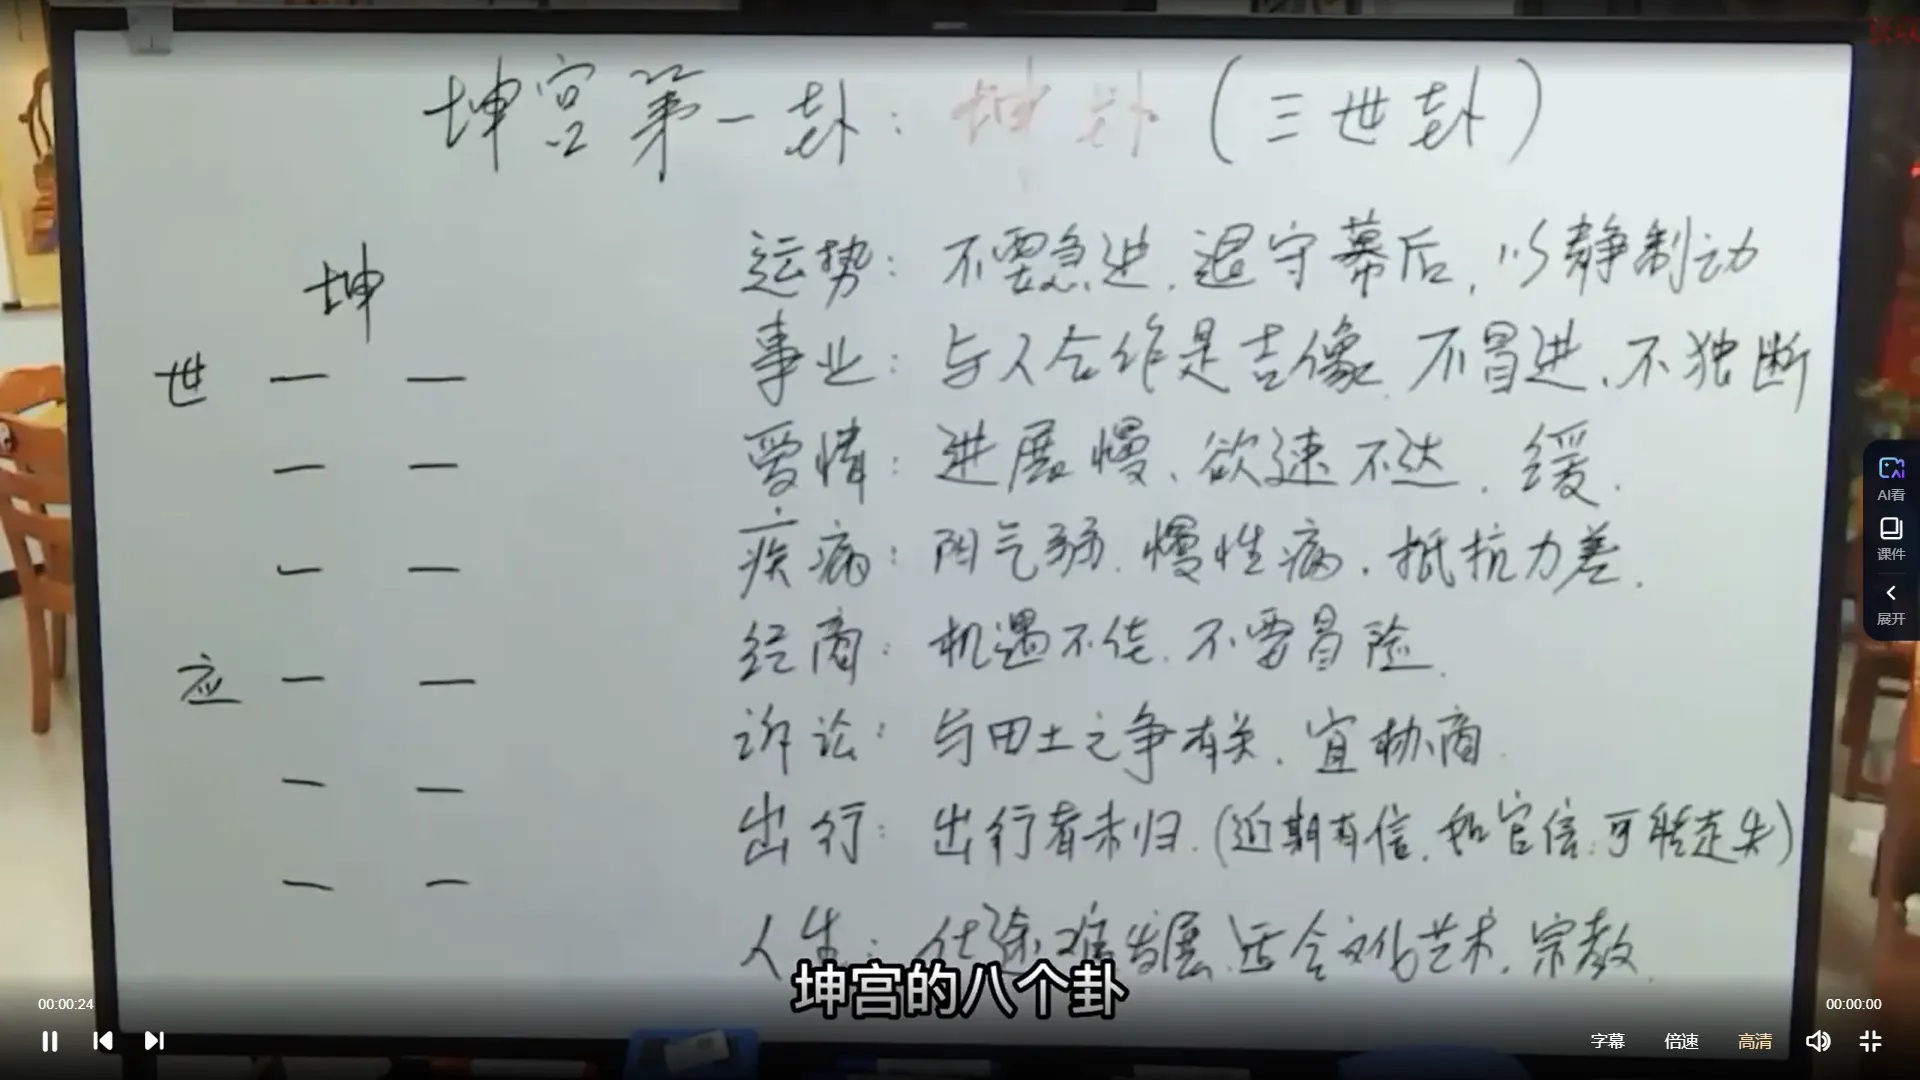 坤宫第一卦：坤卦（三世卦）
坤
世
应
运势：不要急进，退守幕后，以静制动
事业：与人合作是吉像，不冒进、不独断
爱情：进展慢、欲速不达．缓．
疾病：阴气弱．慢性病．抵抗力差．
经商：机遇不佳．不要冒险．
诉讼：与田土之争有关．宜协商．
出行：出行者未归．(近期有信．如官信．可能走失)
人生：仕途难发展．适合文化艺术．宗教．
坤宫的八个卦
AI看
课件
展开
00:00:24
00:00:00
字幕
倍速
高清